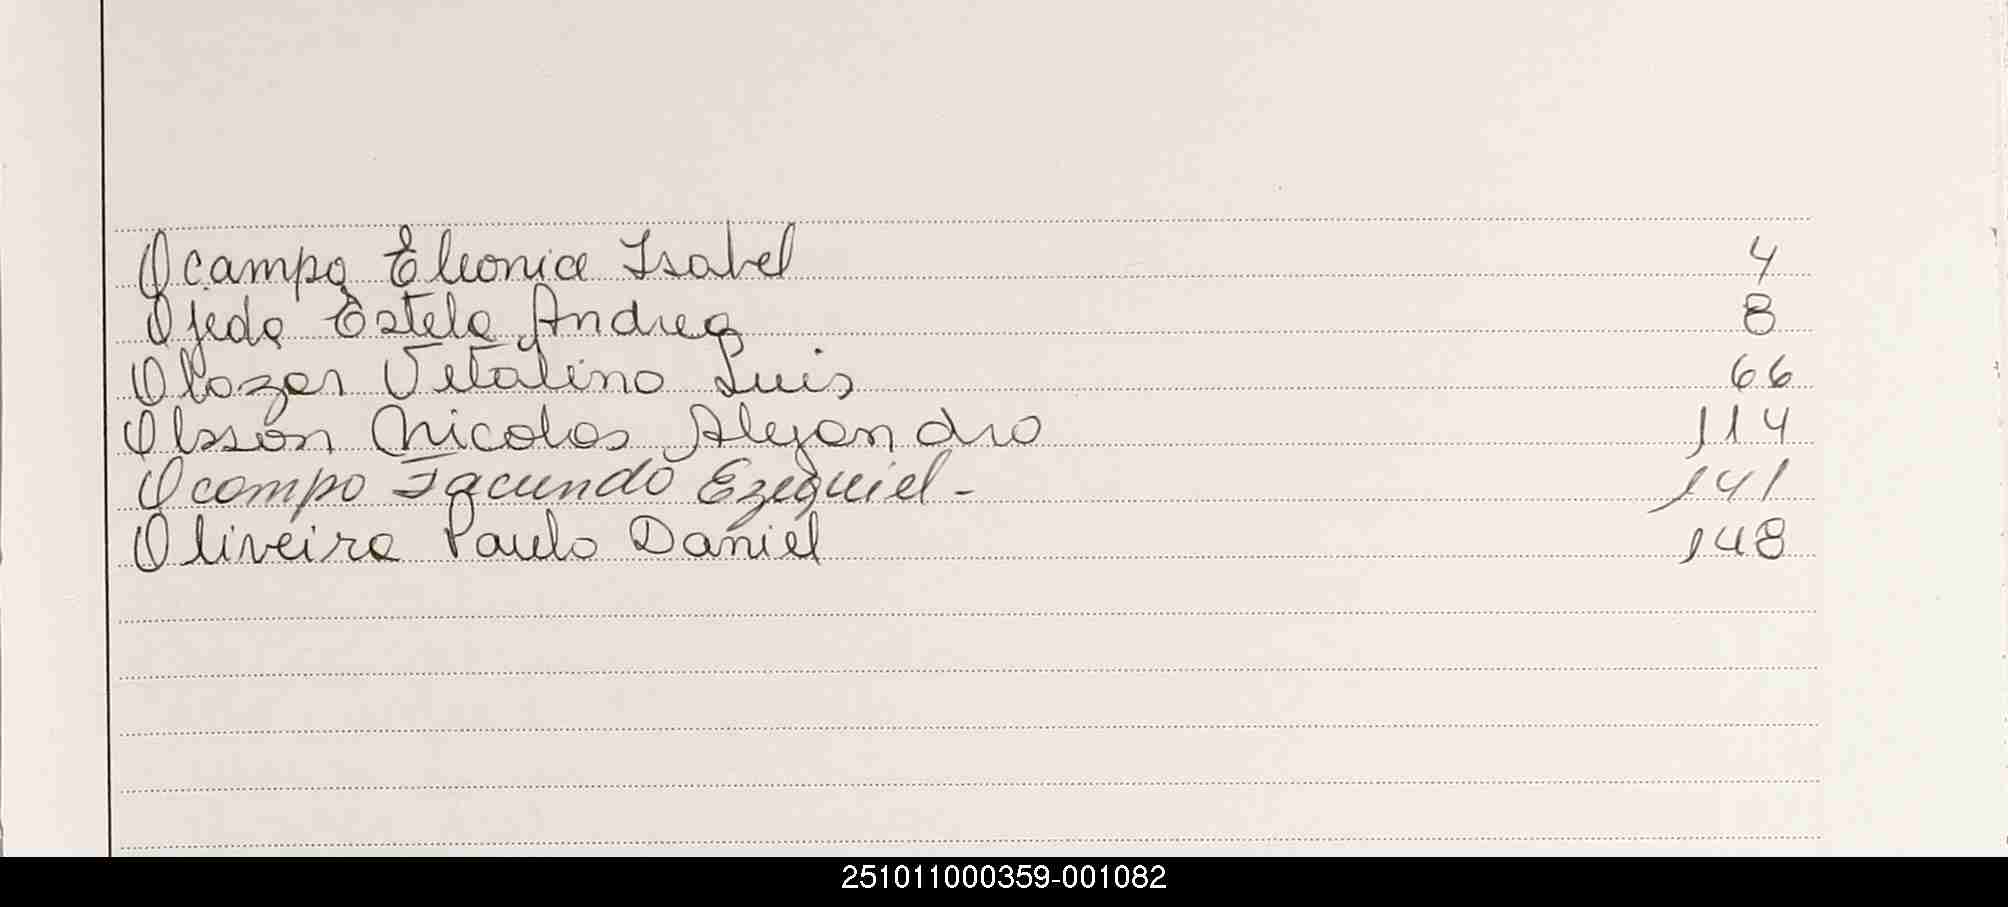 Ocampo Eleonice Isabel 4
Ojeda Estela Andrea 8
Olazar Vitalino Luis 66
Olsson Nicolas Alejandro 114
Ocampo Facundo Ezequiel - 141
Oliveira Paulo Daniel 148
251011000359-001082